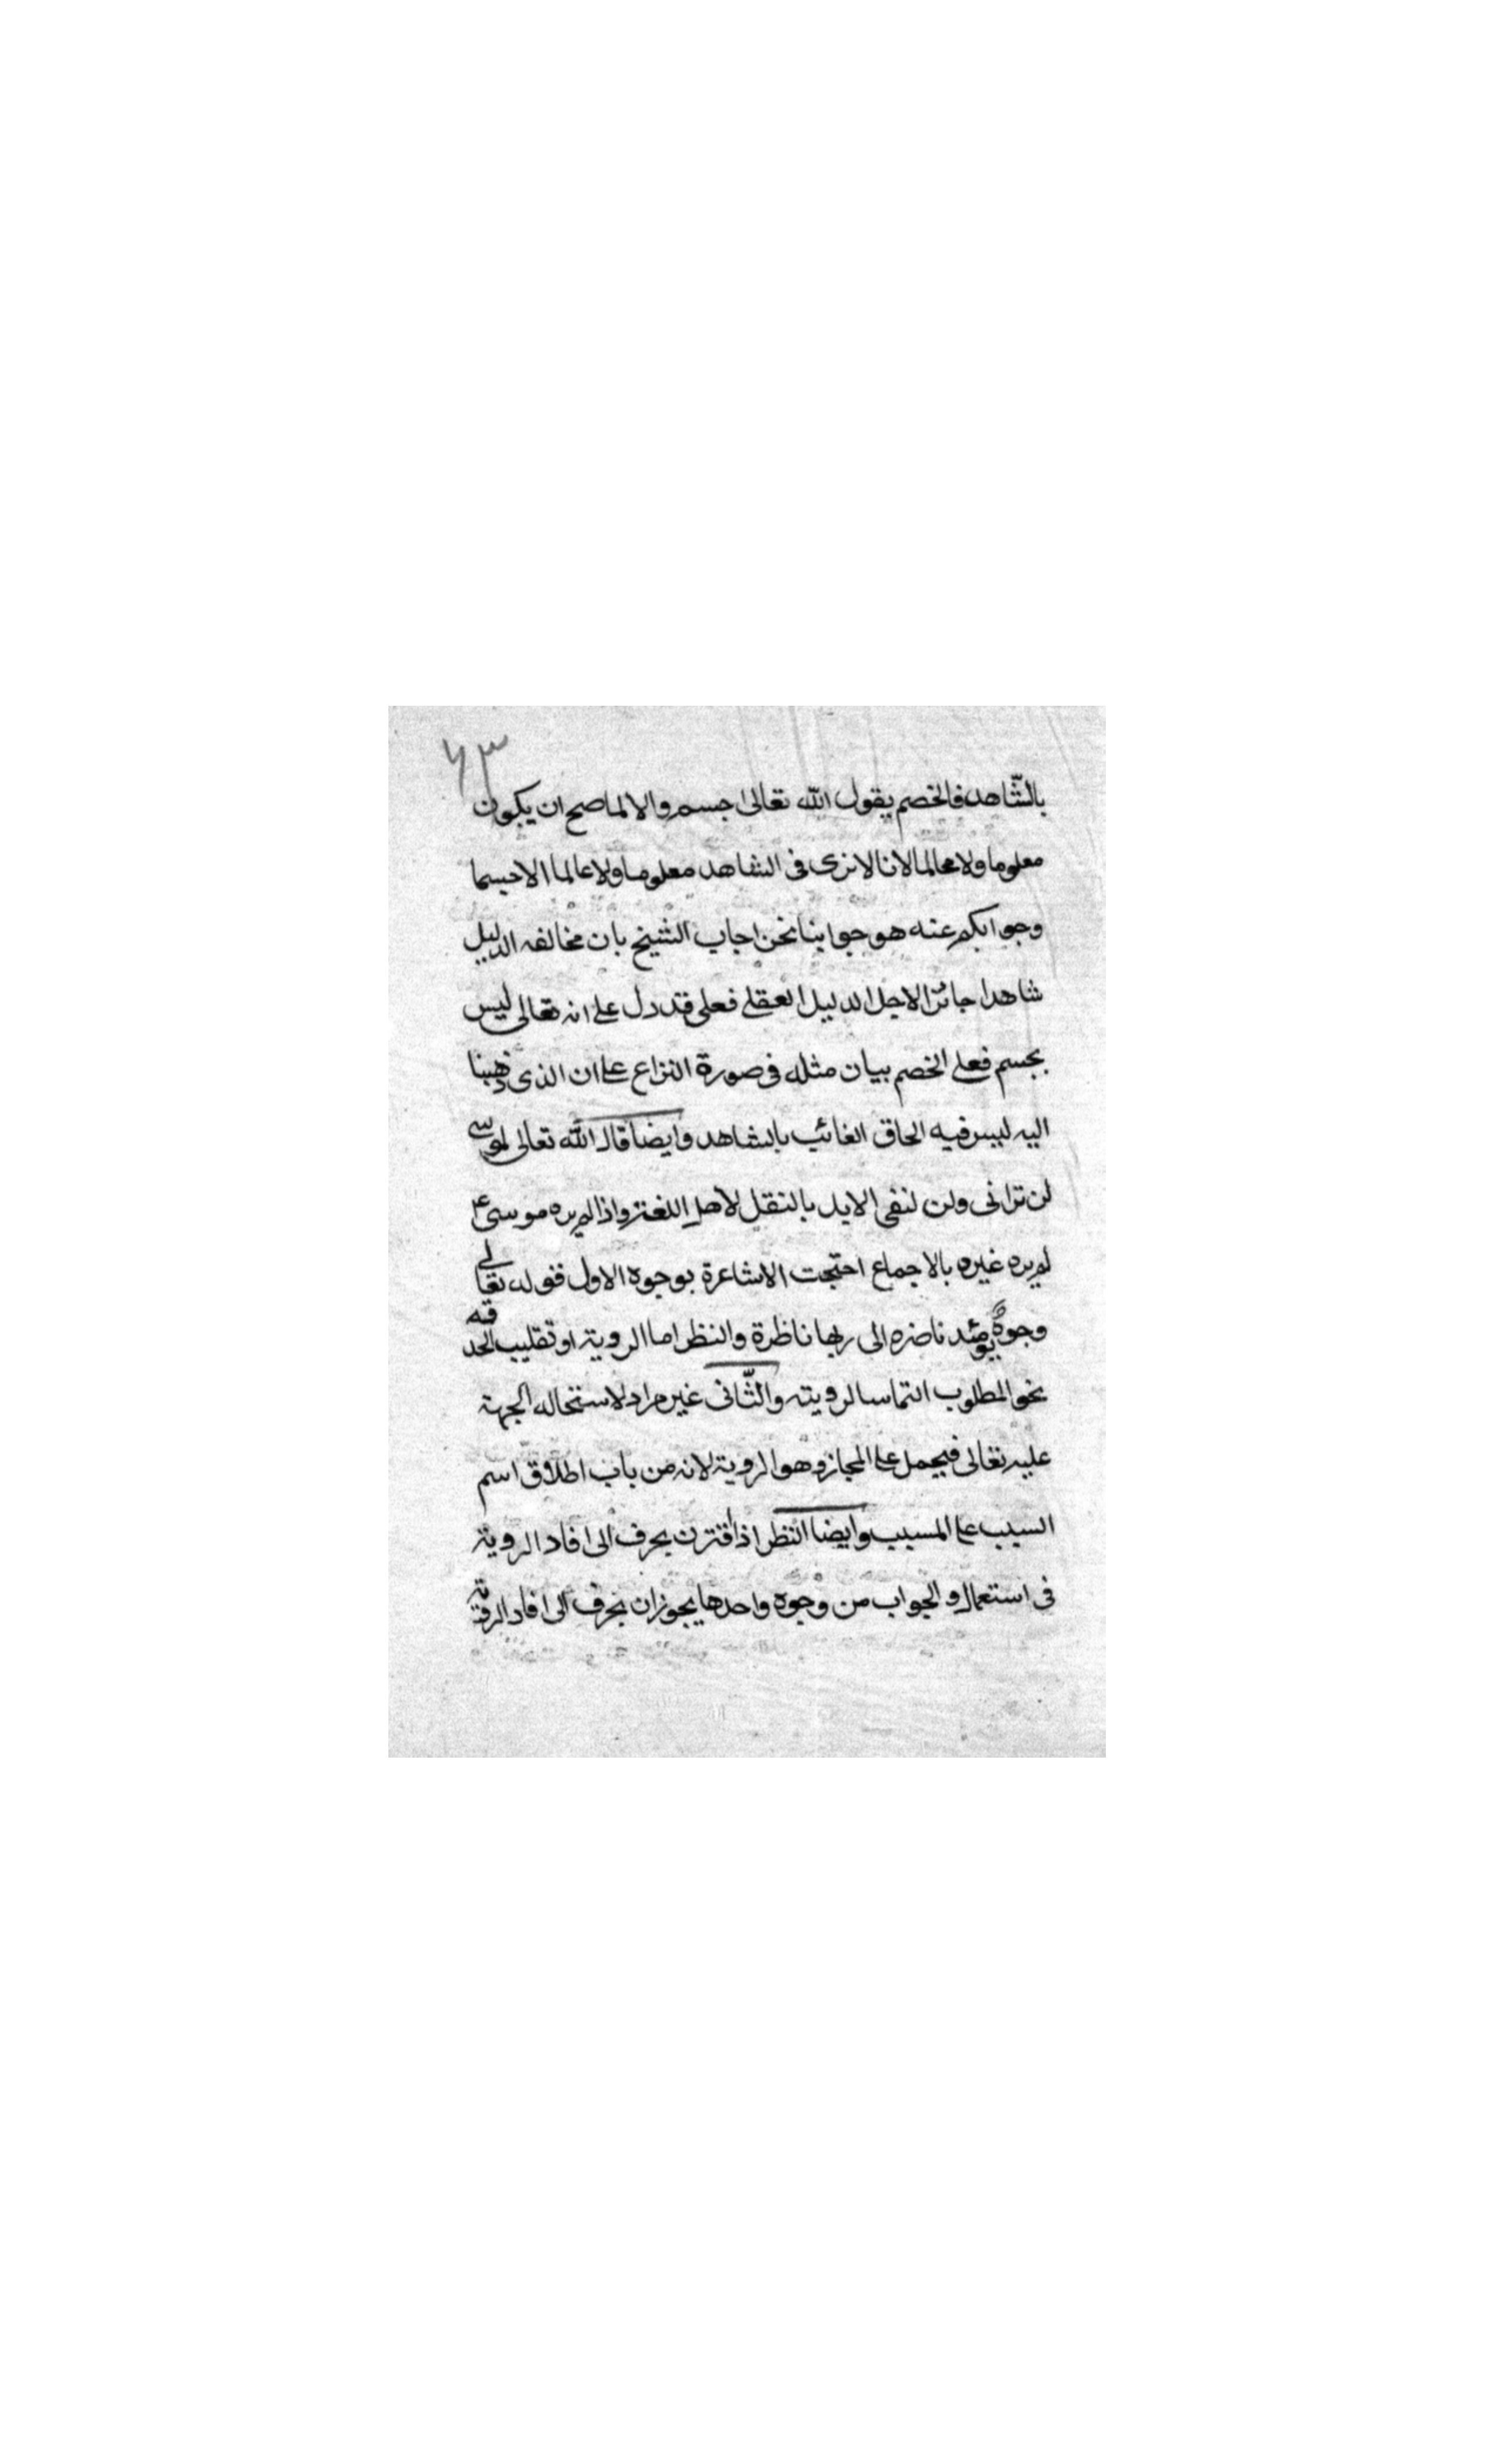 ٦٣
بالشّاهد فالخصم يقول الله تعالى جسم والا لما صح ان يكون
معلوما ولا عالما لانا لا نرى فى الشاهد معلوما ولا عالما الا جسما
وجوابكم عنه هو جوابنا نحن اجاب الشيخ بان مخالفه الدليل
شاهدا جائز لاجل الدليل العقلى فعلى قد دل على انه تعالى ليس
بجسم فعلى الخصم بيان مثله فى صورة النزاع على ان الذى ذهبنا
اليه ليس فيه الحاق الغائب بالشاهد وايضا قال الله تعالى لموسى
لن ترانى ولن لنفى الابد بالنقل لاهل اللغة واذا لم يره موسى ع
لم يره غيره بالاجماع احتجت الاشاعرة بوجوه الاول فقوله تعالى
وجوهٌ يومئد ناضره الى ربها ناظرة والنظر اما الروية او تقليب الحدقه
نحو المطلوب التماسا لرويته والثّانى غير مراد لاستحاله الجهة
عليه تعالى فيحمل على المجاز وهو الروية لانه من باب اطلاق اسم
السبب على المسبب وايضا النظر اذا قترن بحرف الى افاد الروية
فى استعمال و الجواب من وجوه واحدها يجوز ان بحرف الى افاد الروية